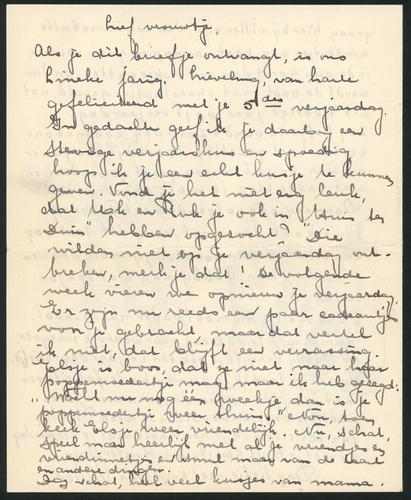 Lief vrouwtje,
Als je dit briefje ontvangt, is ons
Lineke jarig. Lieveling, van harte
gefeliciteerd met je 5des verjaardag.
In gedachte geef ik je daarom een
stevige verjaarskus en spoedig
hoop ik je een echt kusje te kunnen
geven. Vond je het niet erg leuk,
dat Uk en Puk je ook in "Huis ter
Duin" hebben opgezocht? Die
wilden niet op je verjaardag ont-
breken, merk je dat! De volgende
week vieren we opnieuw je verjaardag.
Er zijn nu reeds een paar cadeautjes
voor je gebracht, maar dat vertel
ik niet, dat blijft een verrassing.
is boos, dat ze niet naar haar
poppenmoedertje mag, maar ik heb gezegd:
"Wacht nu nog een weekje dan is je
poppenmoedertje weer thuis". Nou, toen
keek weer vriendelijk. Nu, schat,
speel maar heerlijk met al je vriendjes en
vriendinnetjes en smul maar van de taart
en andere dingen.
Dag schat, heel veel kusjes van mama.